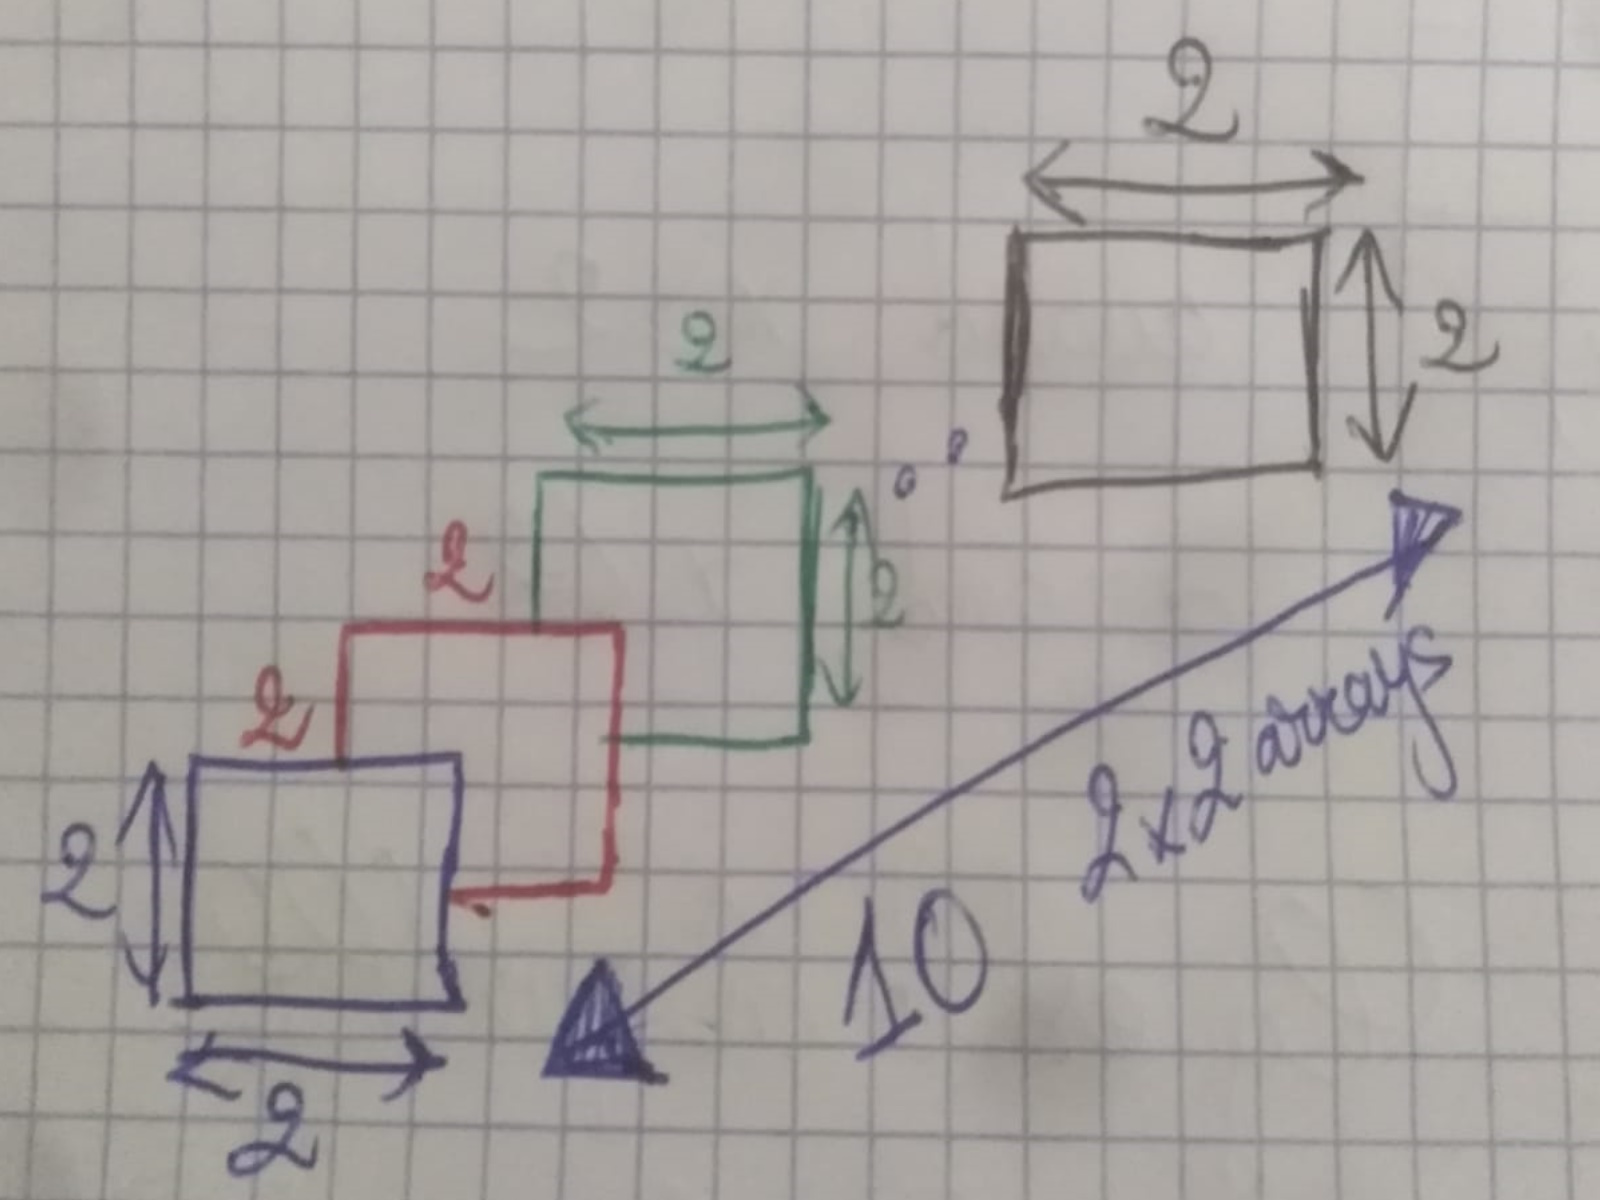 2
2
2
2
2
2
2
2
10
2x2 arrays